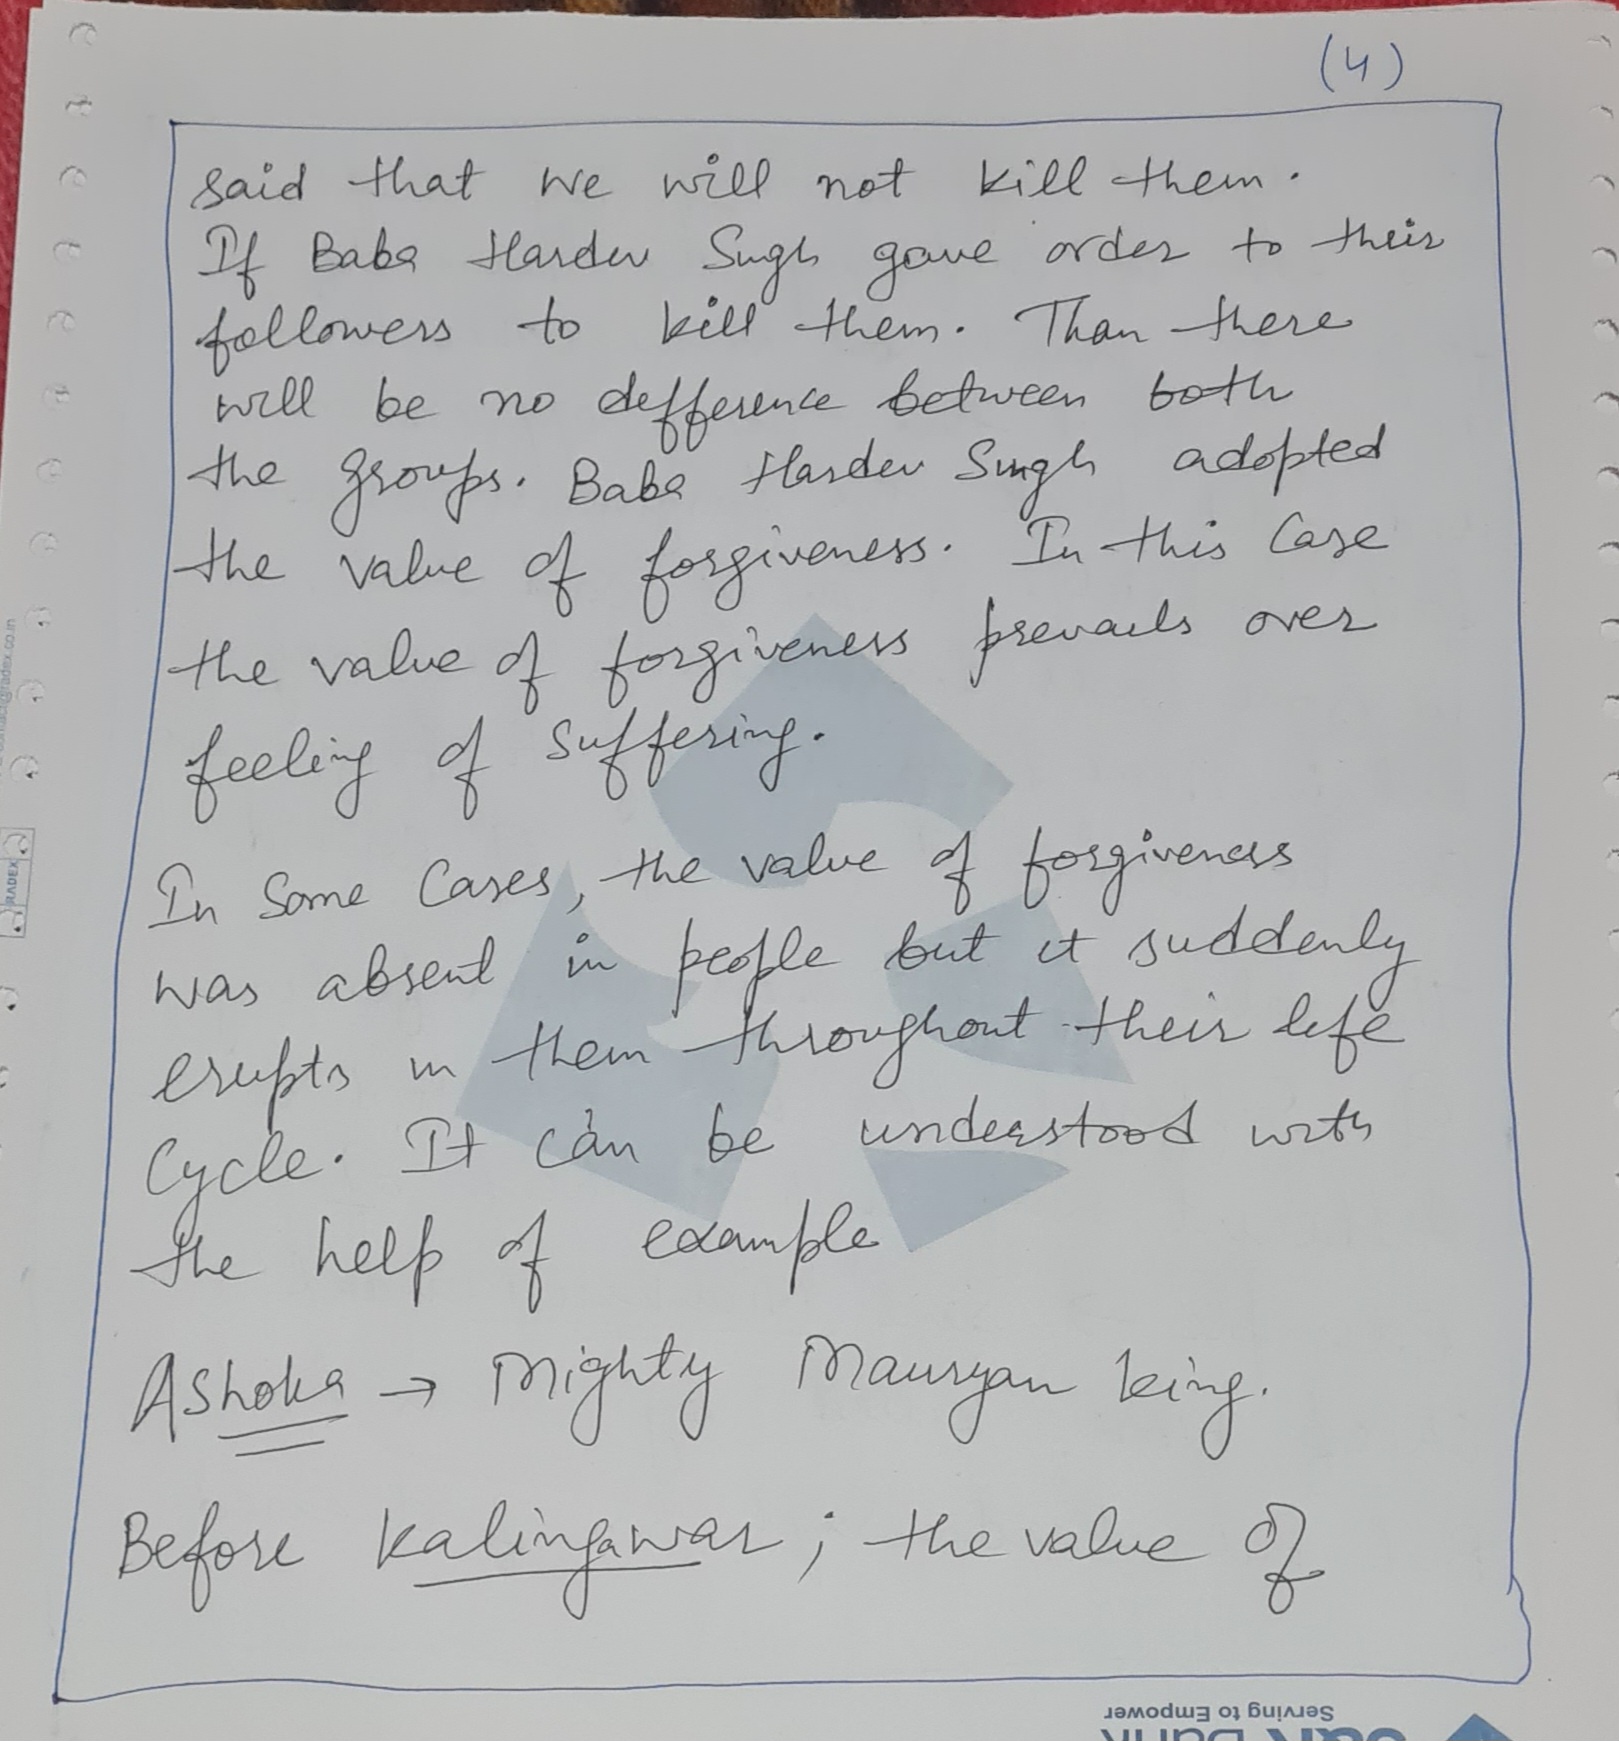 (4)
said that we will not kill them.
If Baba Hardev Singh gave order to their
followers to kill them. Than there
will be no defference between both
the groups. Baba Hardev Singh adopted
the value of forgiveness. In this Case
the value of forgiveness prevails over
feeling of suffering.
In Some Cases, the value of forgiveness
was absent in people but it suddenly
erupts in them throughout their life
Cycle. It can be understood with
the help of example
Ashoka → Mighty Mauryan king.
Before kalingawar; the value of
RADEX
Serving to Empower
J&K Bank